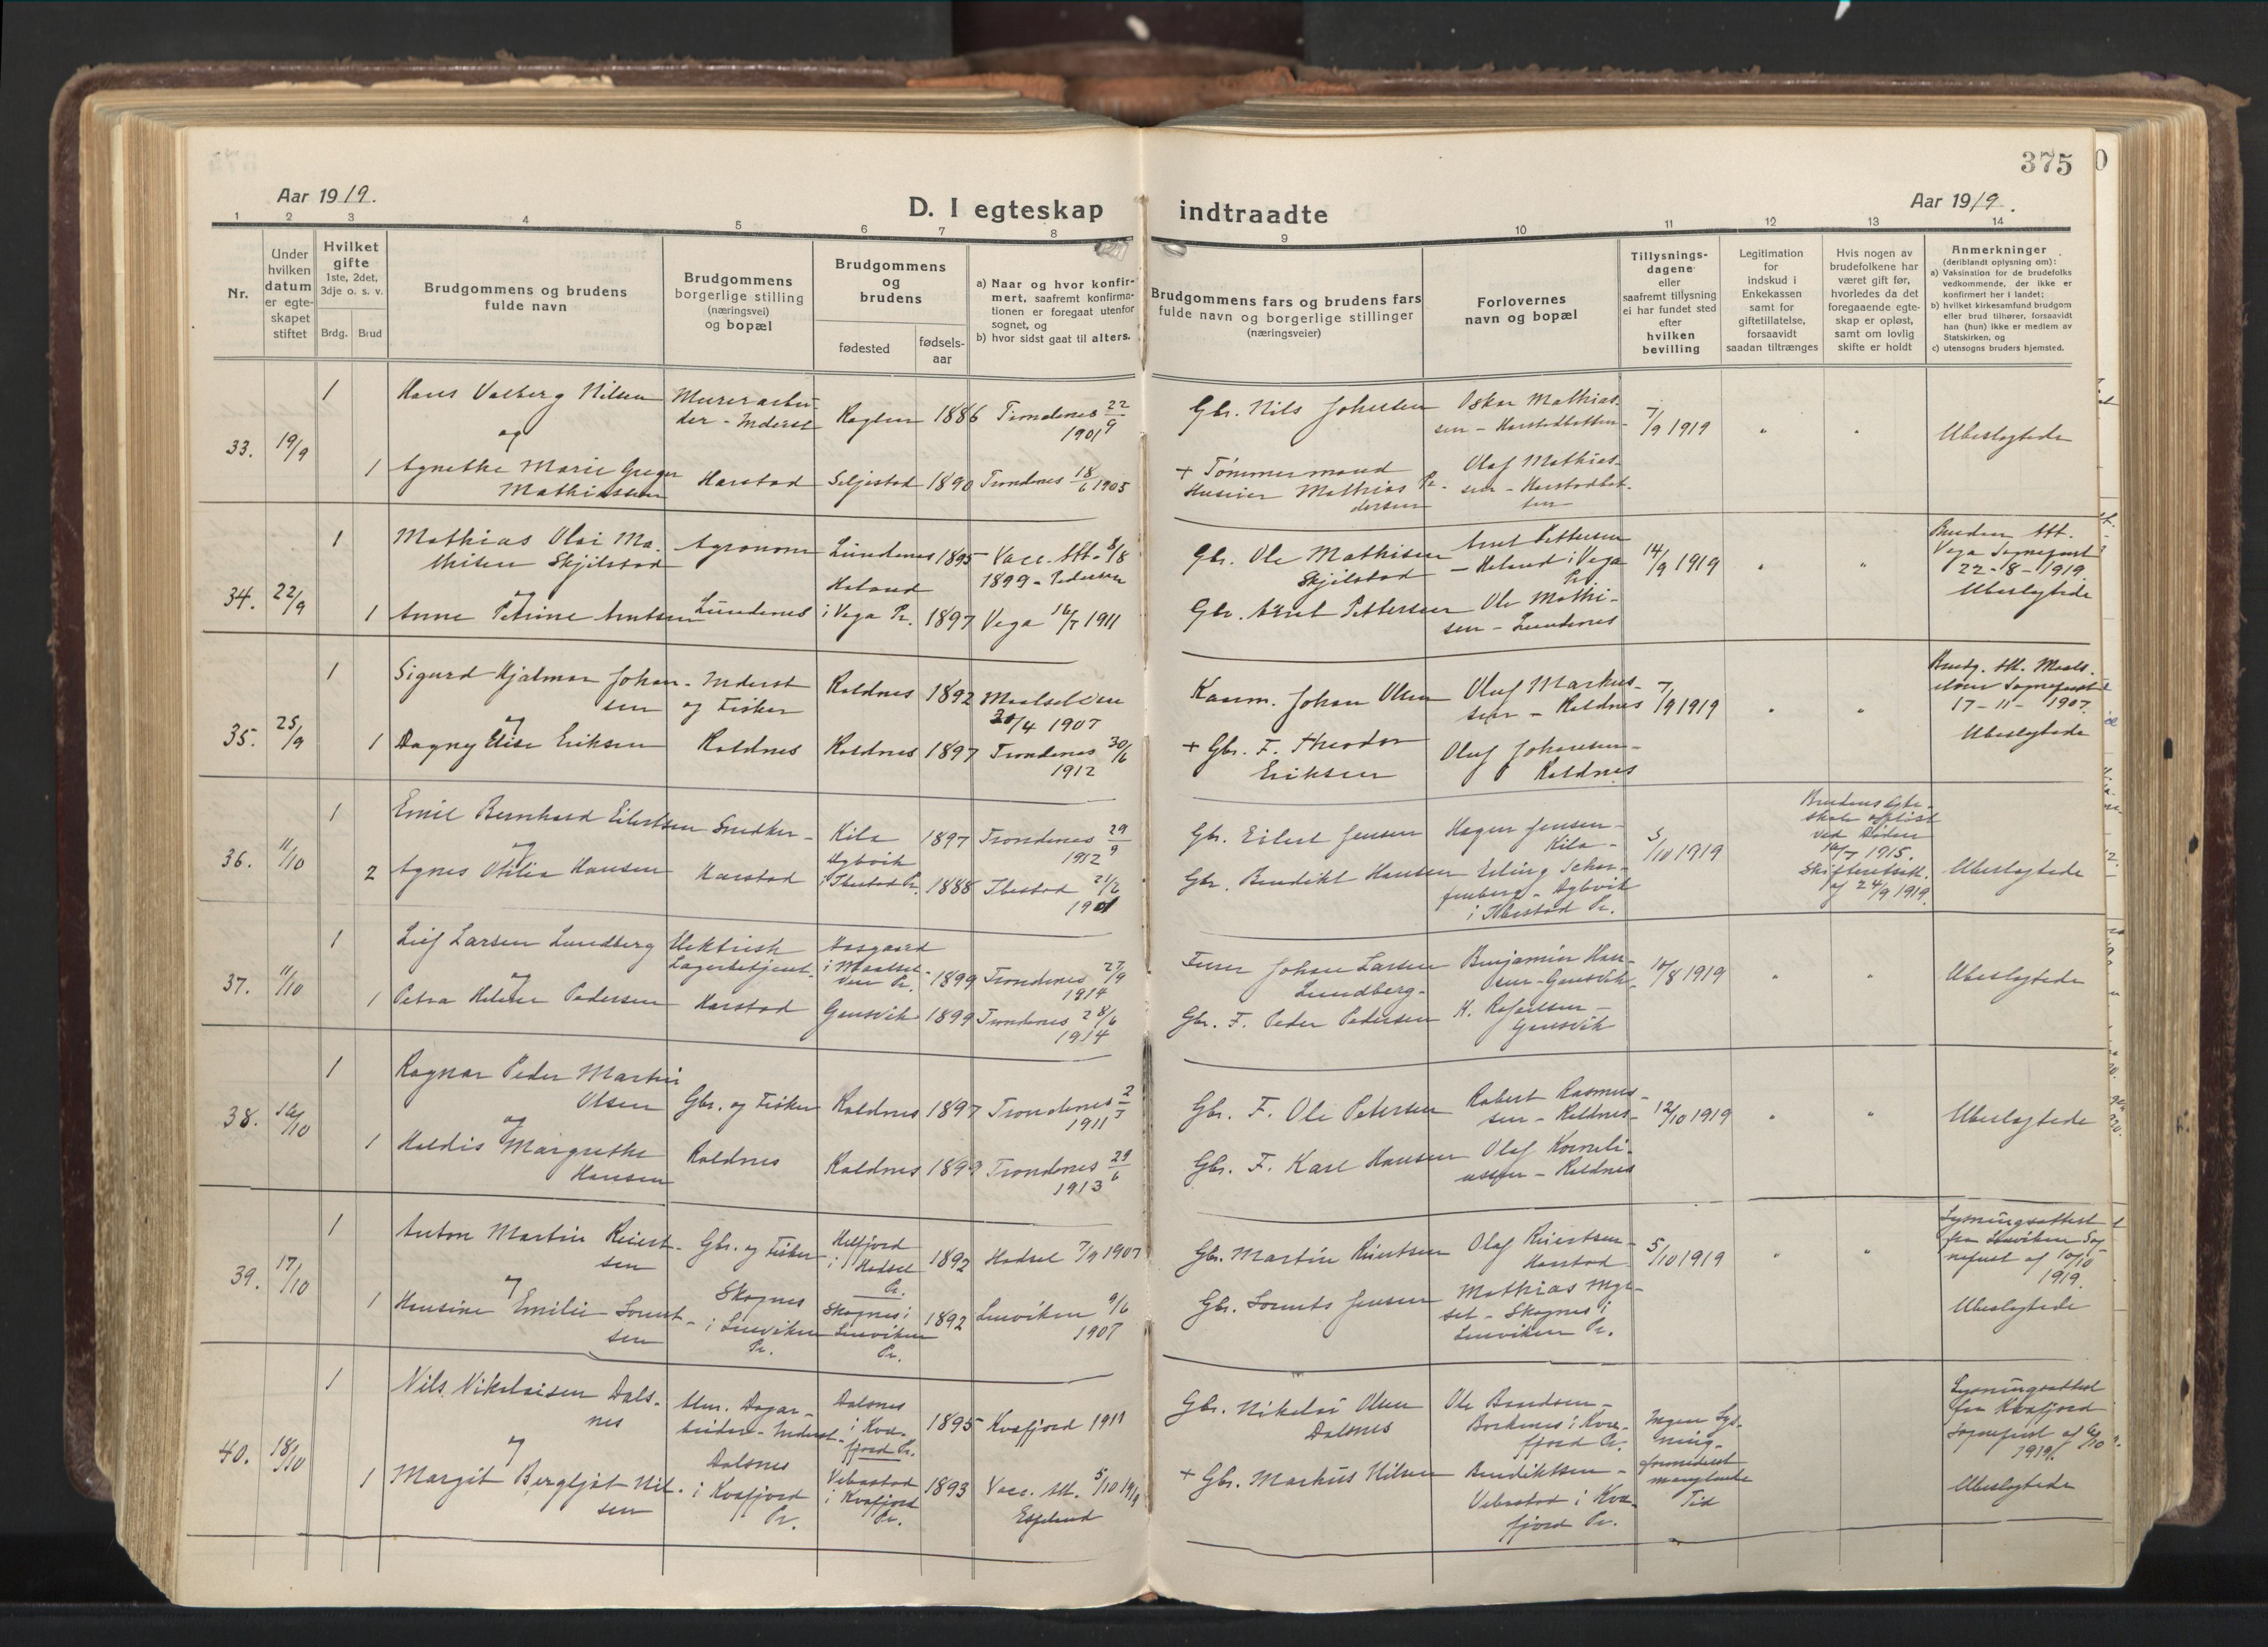 375
Aar 1919.
D. I egteskap indtraadte
Aar 1919.
1 2 3 4 5 6 7 8 9 10 11 12 13 14
Nr.
Under
hvilken
datum
er egte-
skapet
stiftet
Hvilket
gifte
1ste, 2det,
3dje o. s. v.
Brdg. Brud
Brudgommens og brudens
fulde navn
Brudgommens
borgerlige stilling
(næringsvei)
og bopæl
Brudgommens
og
brudens
fødested
fødsels-
aar
a) Naar og hvor konfir-
mert, saafremt konfirma-
tionen er foregaat utenfor
sognet, og
b) hvor sidst gaat til alters.
Brudgommens fars og brudens fars
fulde navn og borgerlige stillinger
(næringsveier)
Forlovernes
navn og bopæl
Tillysnings-
dagene
eller
saafremt tillysning
ei har fundet sted
efter
hvilken
bevilling
Legitimation
for
indskud i
Enkekassen
samt for
giftetillatelse,
forsaavidt
saadan tiltrænges
Hvis nogen av
brudefolkene har
været gift før,
hvorledes da det
foregaaende egte-
skap er opløst,
samt om lovlig
skifte er holdt
Anmerkninger
(deriblandt oplysning om):
a) Vaksination for de brudefolks
vedkommende, der ikke er
konfirmert her i landet;
b) hvilket kirkesamfund brudgom
eller brud tilhører, forsaavidt
han (hun) ikke er medlem av
Statskirken, og
c) utensogns bruders hjemsted.
33. 19/9
1
Hans Valberg Nilsen
og
1 Agnethe Marie Greger
Mathiassen
Murerarbei-
der - Inderst
Harstad
1886
Seljestad 1890
Trondenes 22/9
1901
Trondenes 18/6 1905
Gbr. Nils Johnsen
+ Tømmermand
Huseier Mathias Pe-
dersen
Oskar Mathias-
sen - Harstadbotten
Olaf Mathias-
sen - Harstadbot-
ten
7/9 1919 " "
Ubeslegtede
34. 22/9
1
Mathias Olai Ma-
thisen Skjilstad
og
1 Anne Petrine Arntsen
Agronom
Lundenes
Lundenes 1895
Holand
i Vega Pr. 1897
Vacc. Att. 8/8
1899 - Pedersen
Vega 16/7 1911
Gbr. Ole Mathisen
Skjilstad
Gbr. Arnt Pettersen
Arnt Pettersen
- Holand i Vega
Pr.
Ole Mathi-
sen - Lundenes
14/9 1919 " "
Bruden Att.
Vega Sogneprest
22-8-1919.
Ubeslegtede
35. 25/9
1
Sigurd Hjalmar Johan-
sen
og
1 Dagny Elise Eriksen
Inderst
og Fisker
Kaldnes
Kaldnes 1892
Kaldnes 1897
Maalselven
/4 1907
Trondenes 30/6
1912
Kaarm. Johan Olsen
+ Gbr. F. Theodor
Eriksen
Oluf Markus-
sen - Kaldnes
Oluf Johansen-
Kaldnes
7/9 1919 " "
Brudg. Att. Maals-
elven Sogneprest
17-11-1907.
Ubeslegtede
36. 11/10
1
Emil Bernhard Eilertsen
og
2 Agnes Otilia Hansen
Snedker -
Harstad
Kila 1897
i Ibestad Pr. 1888
Trondenes 29/9
1912
Ibestad 21/6
Gbr. Eilert Jensen
Gbr. Benedikt Hansen
Hagen Jensen-
Kila -
Erling Schar-
fenberg -
i Ibestad Pr.
5/10 1919
Brudens egte-
skab opløst
ved Døden
1915.
Skifteretsatt.
af 24/9 1919.
Ubeslegtede
37. 11/10
1
Leif Larsen Lundberg
og
1 Petra Helene Pedersen
Elektrisk
Lagerbetjent.
Harstad
Aasgaard
i Maalsel-
ven Pr. 1899
Gausvik 1899
Trondenes 27/9
1914
Trondenes 28/6
1914
Furer Johan Larsen
Lundberg-
Gbr. F. Peder Pedersen
Benjamin Han-
sen - Gausvik
K. Rafaelsen -
Gausvik
10/8 1919 " "
Ubeslegtede
38. 16/10
1
Ragnar Peder Martin
Olsen
og
1 Haldis Margrethe
Hansen
Gbr. og Fisker
Kaldnes
Kaldnes 1897
Kaldnes 1899
Trondenes 2/7
1911
Trondenes 29/6
1913
Gbr. F. Ole Petersen
Gbr. F. Karl Hansen
Robert Rasmus-
sen - Kaldnes -
Olaf Korneli-
ussen - Kaldnes
12/10 1919 " "
Ubeslegtede
39. 17/10
1
Anton Martin Reiert-
sen
og
1 Hansine Emilie Lorent-
sen
Gbr. og Fisker
Skognes
i Lenviken
Pr.
Helfjord
i Hadsel
Pr. 1892
Skognes i
Lenviken
Pr. 1892
Hadsel 7/9 1907
Lenviken 9/6
1907
Gbr. Martin Reiertsen
Gbr. Lorents Jensen
Olaf Reiertsen-
Harstad
Mathias
- Skognes i
Lenviken Pr.
5/10 1919 " "
Lysningsattest
fra Lenviken Sog-
neprest af 10/10
1919.
Ubeslegtede
40. 18/10
1
Nils Nikolaisen Dals-
nes
og
1 Margit Bergljot Nil-
sen
Alm. Dagar-
beider - Inderst -
Dalsnes
i Kvæfjord
Pr.
Dalsnes
i Kvæ-
fjord Pr. 1895
Vebostad
i Kvæfjord
Pr. 1893
Kvæfjord 1911
Vacc. Att. 5/10 1919
Espelund
Gbr. Nikolai Olsen
Dalsnes
+ Gbr. Markus Nilsen
Ole Bendsen -
Borkenes i Kvæ-
fjord Pr.
Bendiktsen -
Vebostad i Kvæ-
fjord Pr.
Ingen Lys-
ning -
formedelst
manglende
Tid
Lysningsattest
fra Kvæfjord
Sogneprest af 6/10
1919.
Ubeslegtede